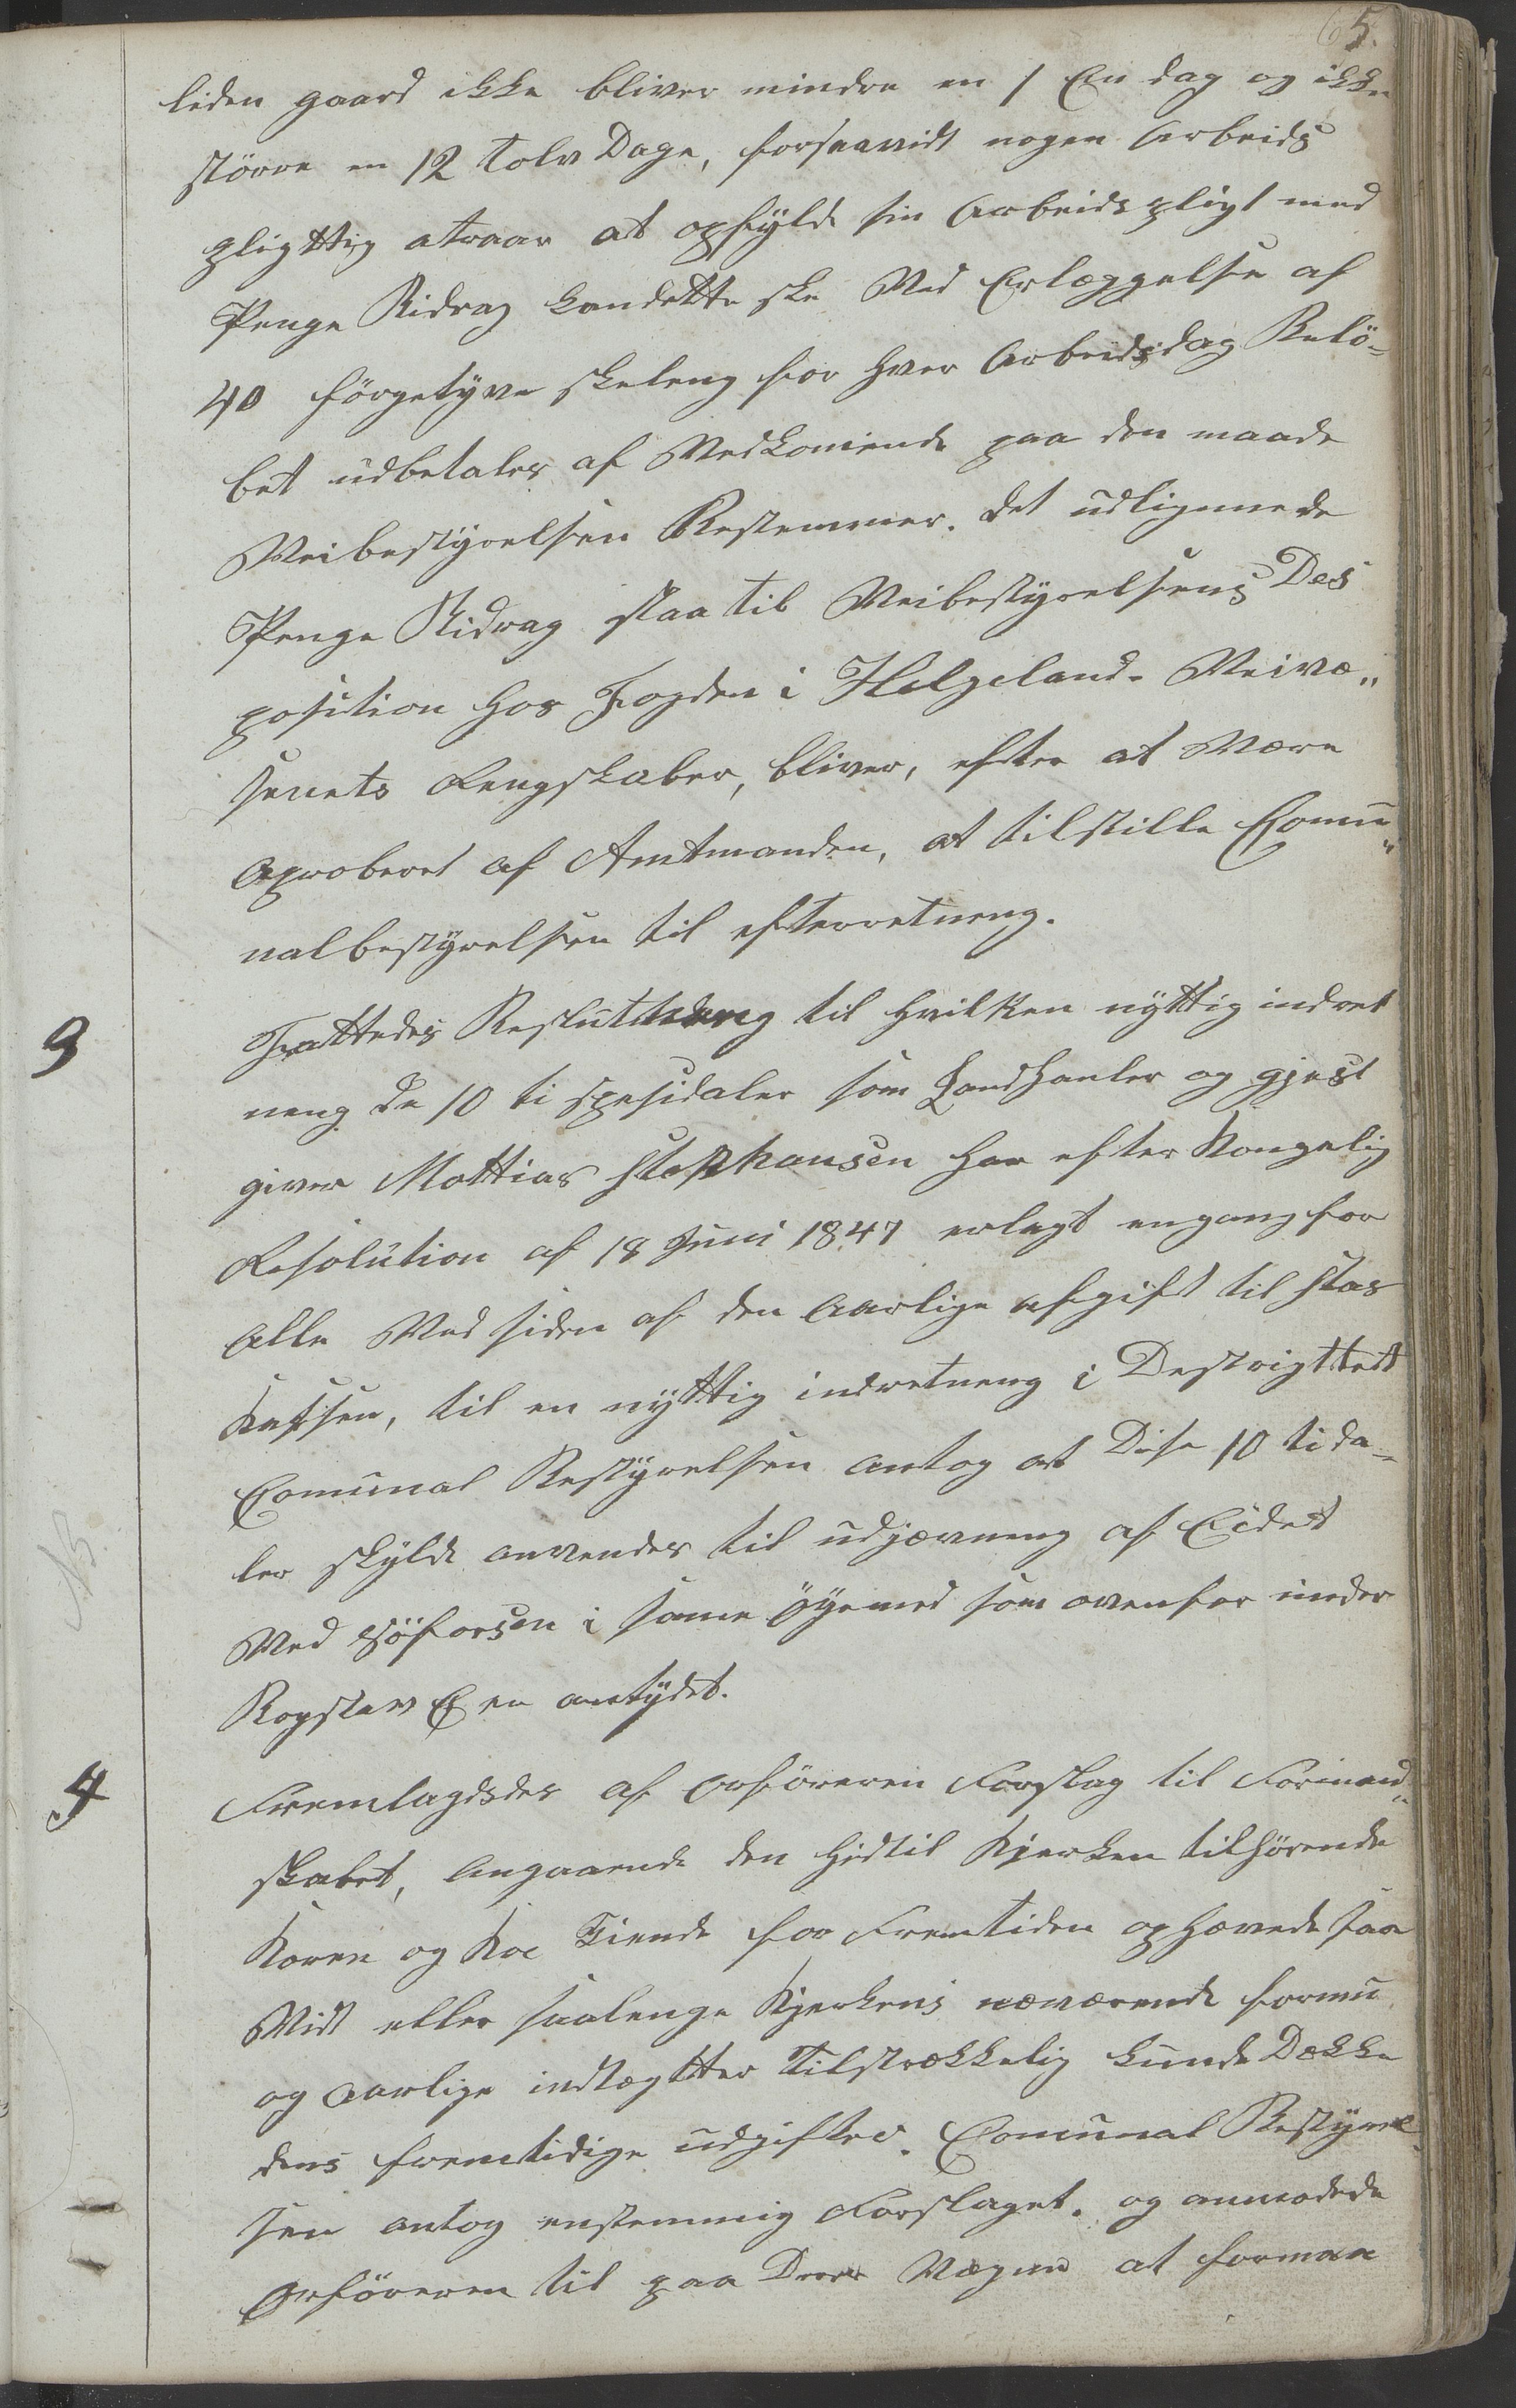 5.
liden gaard ikke bliver mindre en 1 En dag og ikke
större en 12 tolv Dage, forsaavidt nogen Arbeids
pligttig atraar at opfylde sin Arbeidspligt med
Penge Bidrag kandette ske Ved Erlæggelse af
40 förgetyve skeleng for hver Arbeidsdag Belö-
bet udbetales af Vedkomende paa den maade
Veibestyrelsen Bestemmer. det udlignnede
Penge Bidrag staa til Veibestyrelsens Des
position hos Fogden i Helgeland. Veivæ„
senets Rengskaber, bliver, efter at Være
Aproberet af Amtmanden, at tilstille Comu„
nalbestyrelsen til efterretneng.
3
Fattedes Beslutning til hvilken nyttig indret
neng de 10 ti spesidaler som Landhanler og gjest
giver Mattias Stephansen har efter Kongelig
Resolution af 18 Juni 1847 erlagt engang for
Alle Ved siden af den Aarlige afgift til Stas
Kassen, til en nyttig indretneng i Destrigttett
Comunal Bestyrelsen antog at Dise 10 ti da-
ler skylde anvendes til udjævneng af Eidet
Ved Söforsen i same Öyemed som ovenfor under
Bogstav E en antydet.
4
Fremlagdsdes af Orföreren Forslag til Formand„
skabet, Angaaende den hidtil Kjerken tilhörende
Koren og Koe Tiende for Fremtiden ophævede saa
Vidt eller saalenge Kjerkens næværende formu
og Aarlige indtægtter Tilstrækkelig kunde Dække
dens fremtidige udgifter. Comunal Bestyrel
sen antog enstemmig Forslaget. og anmodede
Orföreren til paa Deres Vegne at formaa